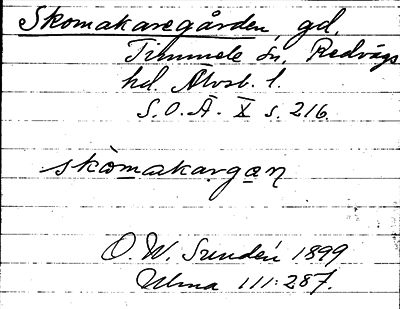 Skomakaregården, gd,
Timmele sn, Redvägs
hd. Älvsb. l.
S.O.Ä. X s. 216.
skòmakargan
O. W. Sundén 1899
Ulma 111:287.